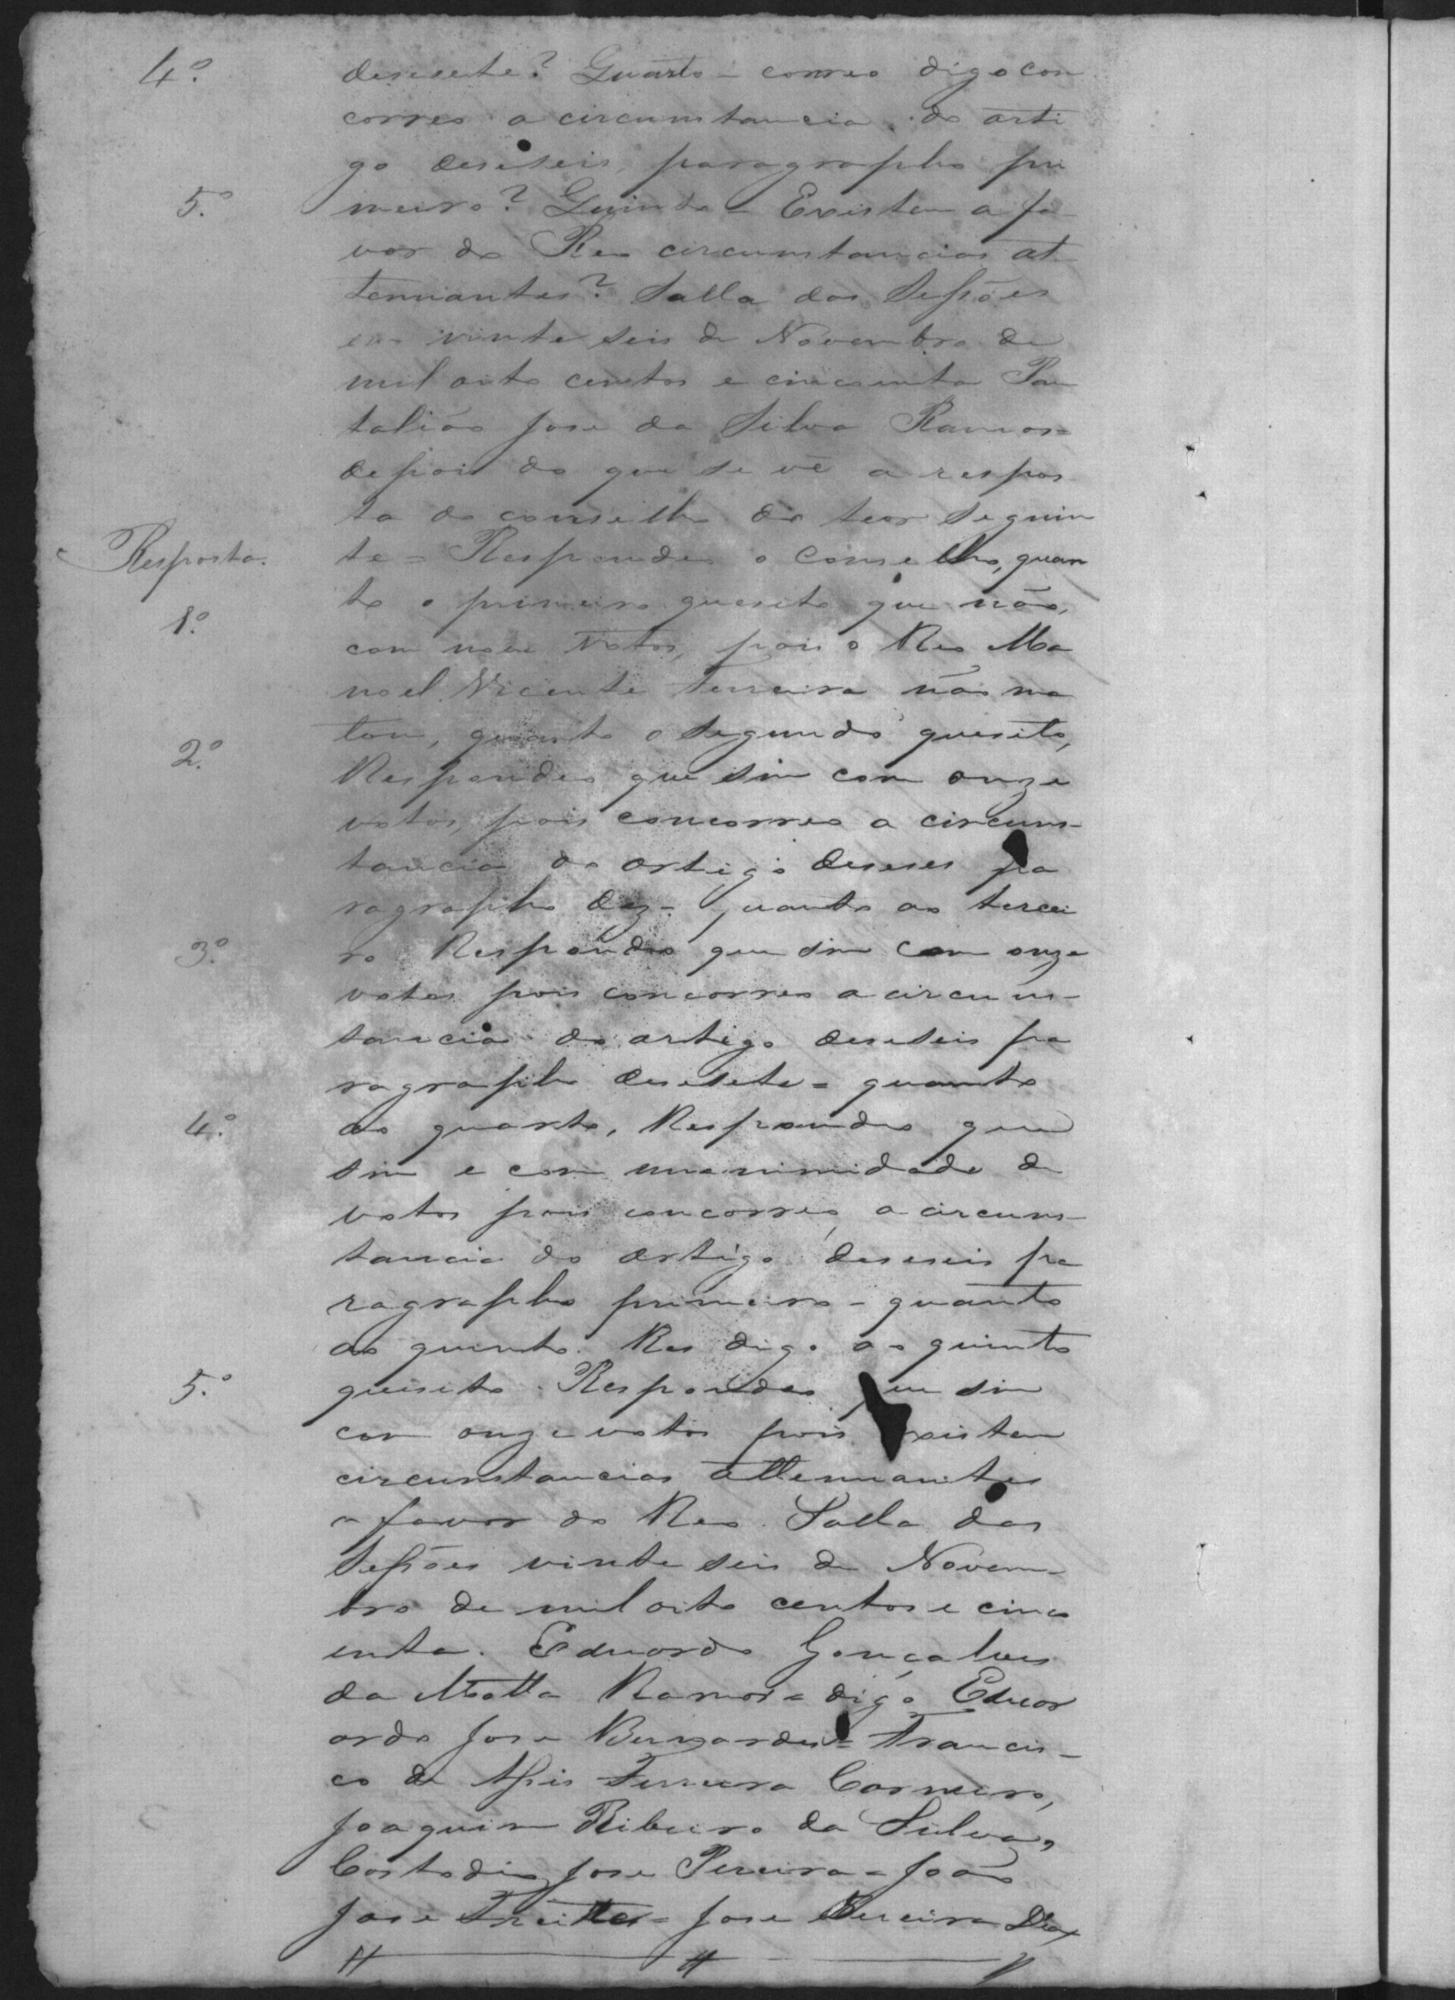 4.º desesete? Quarto - correo digo con
correo a circumstancia do arti
go deseseis paragrapho pri
5.º meiro? Quinto - Existem a fa
vor do Reo circumstancias at
tenuantes? Salla das Sessões
em vinte seis de Novembro de
mil oito centos e cincoenta Pan
talião Jose da Silva Ramos =
depois do que se vê a respos
ta do conselho do teor seguin
Resposta. te = Respondeo o Conselho, quan
to o primeiro quesito que não,
1.º com nove votos, pois o Reo Ma
noel Vicente Ferreira não ma
tou, quanto o segundo quesito,
2.º Respondeo que sim com onze
votos, pois concorreo a circum-
tancia do artigo deseses pa
ragrapho dez - quanto ao tercei
3.º ro Respondeo que sim com onze
votos pois concorreo a circuns-
tancia do artigo deseseis pa
ragrapho desesete = quanto
4.º ao quarto, Respondeo que
sim e com unanimidade de
votos pois concorreo a circuns-
tancia do artigo deseseis pa
ragrapho primeiro - quanto
ao quinto. Res digo ao quinto
5.º quisito Respondeo que sim
com onze votos pois existem
circunstancias attenuantes
a favor do Reo. Salla das
Sessões vinte seis de Novem-
bro de mil oito centos e cinco
enta. Eduardo Gonçalves
da Motta Ramos = digo Eduar
ardo Jose Bernardes = Francis-
co de Assis Ferreira Carneiro,
Joaquim Ribeiro da Silva,
Costodio Jose Pereira = João
Jose Freitas = Jose Pereira